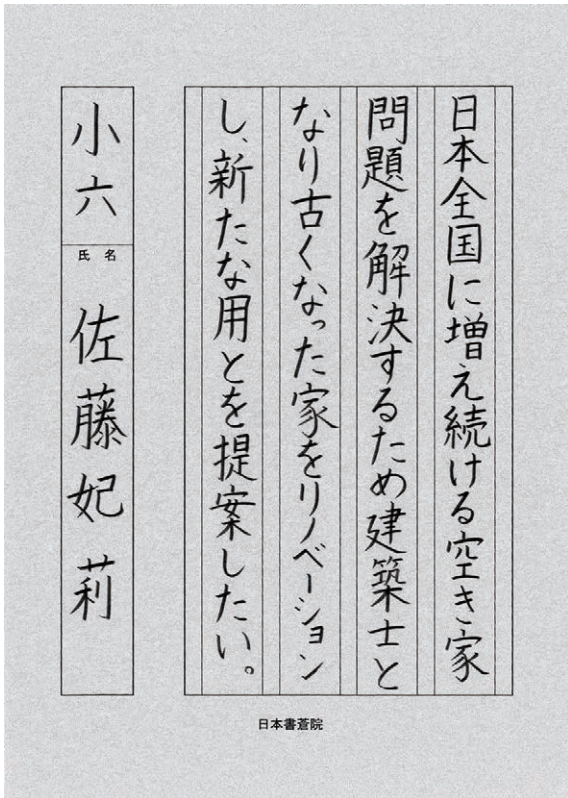 日本全国に増え続ける空き家
問題を解決するため建築士と
なり古くなった家をリノベーション
し、新たな用とを提案したい。
小六
氏名
佐藤妃莉
日本書蒼院